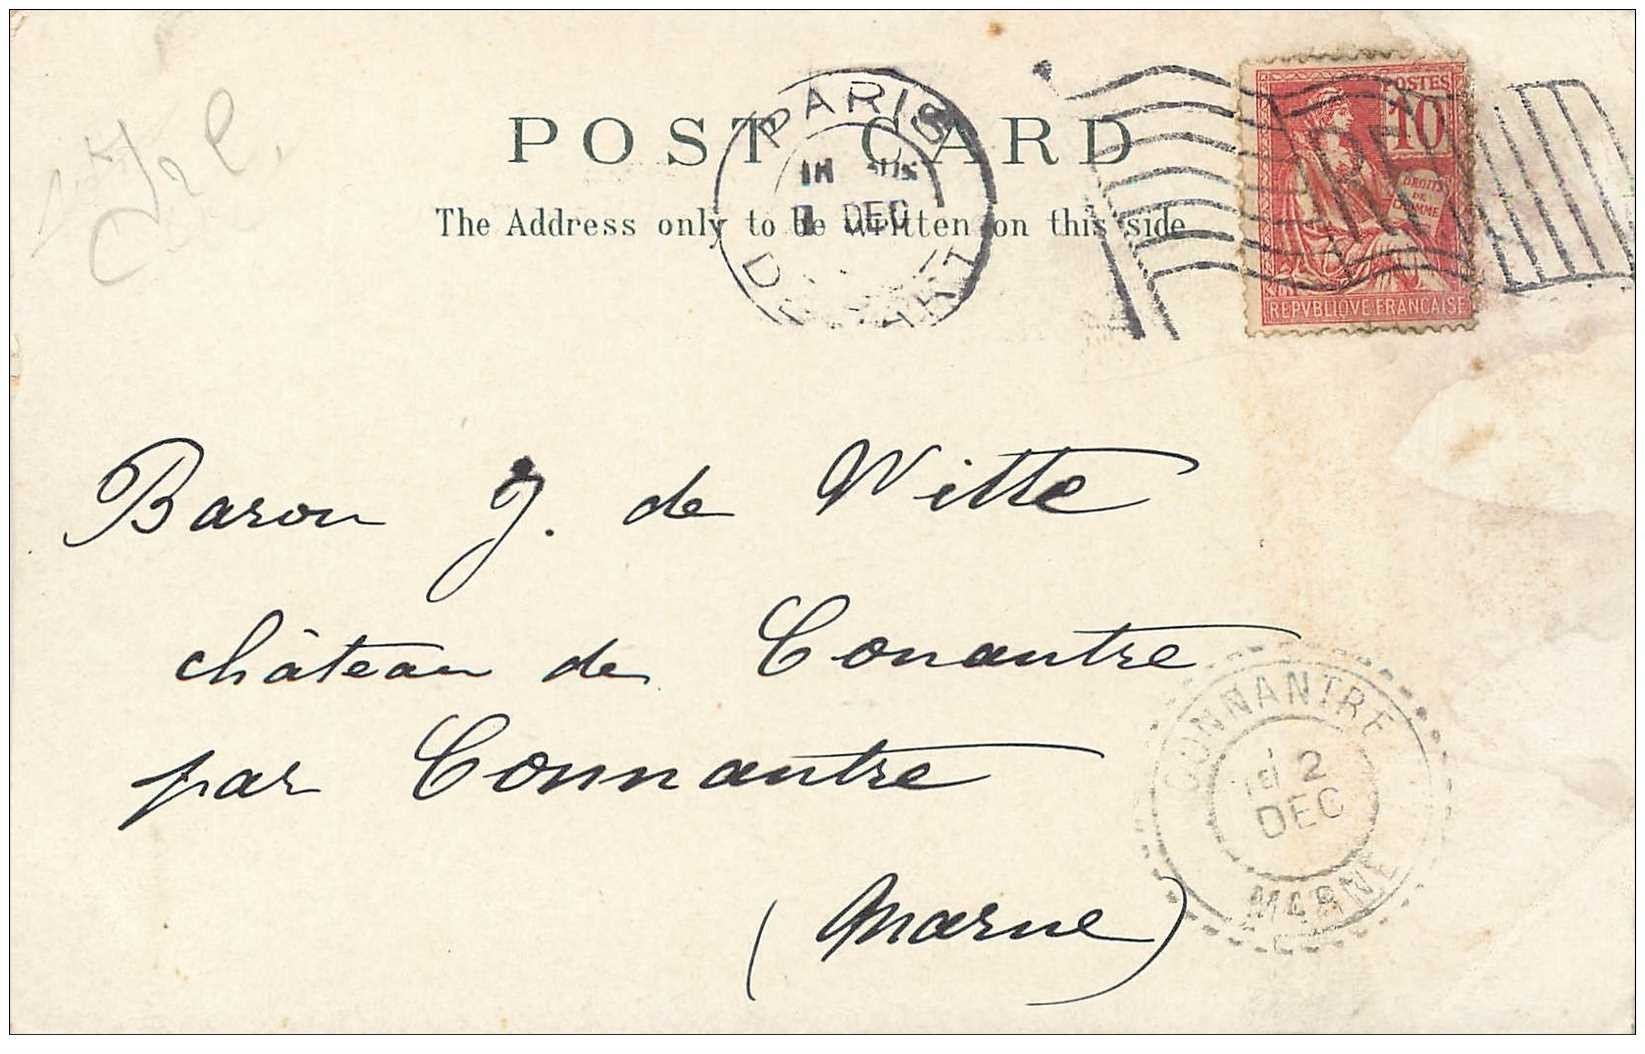 POST CARD
The Address only to be written on this side
PARIS
DEC
POSTES
10
DROITS
DE
L'HOMME
REPVBLIQVE FRANÇAISE
RF
Baron J. de Witte
château de Conantre
par Connantre
(Marne)
CONNANTRE
2
DEC
MARNE